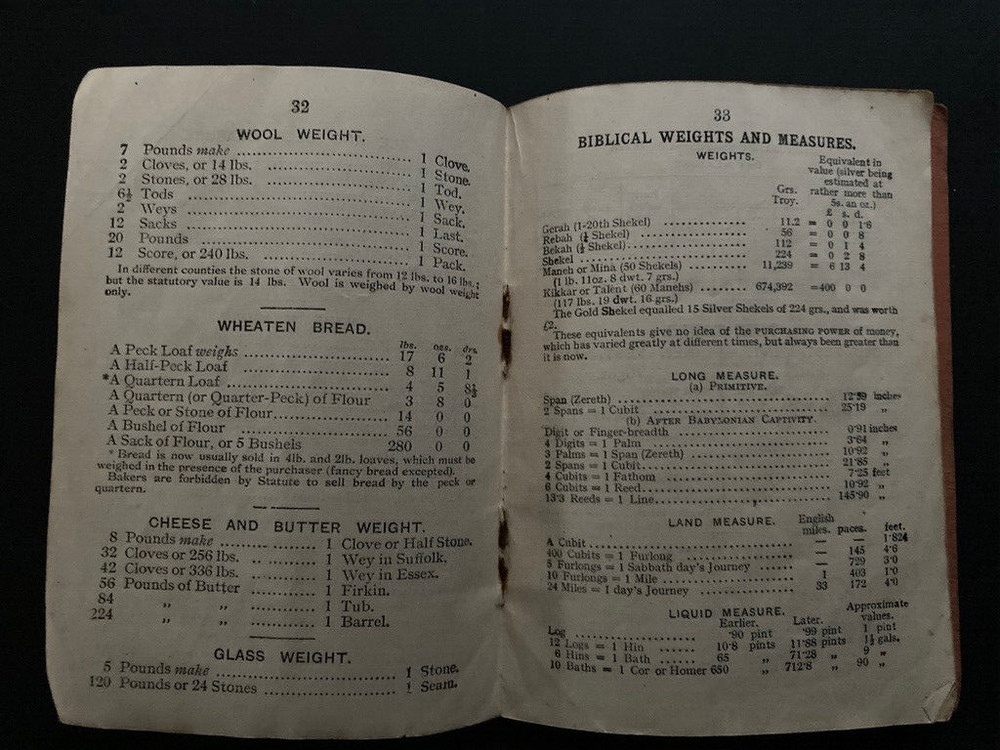 32
WOOL WEIGHT.
7 Pounds make ........ 1 Clove.
2 Cloves, or 14 lbs. ........ 1 Stone.
2 Stones, or 28 lbs. ........ 1 Tod.
6½ Tods ........ 1 Wey.
2 Weys ........ 1 Sack.
12 Sacks ........ 1 Last.
20 Pounds ........ 1 Score.
12 Score, or 240 lbs. ........ 1 Pack.
In different counties the stone of wool varies from 12 lbs. to 16 lbs.;
but the statutory value is 14 lbs. Wool is weighed by wool weight
only.
WHEATEN BREAD.
lbs. ozs. drs.
A Peck Loaf weighs ........ 17 6 2
A Half-Peck Loaf ........ 8 11 1
*A Quartern Loaf ........ 4 5 8½
A Quartern (or Quarter-Peck) of Flour 3 8 0
A Peck or Stone of Flour........ 14 0 0
A Bushel of Flour ........ 56 0 0
A Sack of Flour, or 5 Bushels 280 0 0
* Bread is now usually sold in 4lb. and 2lb. loaves, which must be
weighed in the presence of the purchaser (fancy bread excepted).
Bakers are forbidden by Statute to sell bread by the peck or
quartern.
CHEESE AND BUTTER WEIGHT.
8 Pounds make ........ 1 Clove or Half Stone.
32 Cloves or 256 lbs. ........ 1 Wey in Suffolk.
42 Cloves or 336 lbs. ........ 1 Wey in Essex.
56 Pounds of Butter ........ 1 Firkin.
84 „ „ ........ 1 Tub.
224 „ „ ........ 1 Barrel.
GLASS WEIGHT.
5 Pounds make ........ 1 Stone.
120 Pounds or 24 Stones ........ 1 Seam.
33
BIBLICAL WEIGHTS AND MEASURES.
WEIGHTS.
Grs. Troy.
Equivalent in
value (silver being
estimated at
rather more than
5s. an oz.)
£ s. d.
Gerah (1-20th Shekel) ........ 11.2 = 0 0 1·6
Rebah (¼ Shekel) ........ 56 = 0 0 8
Bekah (½ Shekel)........ 112 = 0 1 4
Shekel ........ 224 = 0 2 8
Maneh or Mina (50 Shekels) ........ 11,239 = 6 13 4
(1 lb. 11oz. 8 dwt. 7 grs.)
Kikkar or Talent (60 Manehs) ........ 674,392 =400 0 0
(117 lbs. 19 dwt. 16 grs.)
The Gold Shekel equalled 15 Silver Shekels of 224 grs., and was worth
£2.
These equivalents give no idea of the PURCHASING POWER of money,
which has varied greatly at different times, but always been greater than
it is now.
LONG MEASURE.
(a) PRIMITIVE.
Span (Zereth) ........ 12·59 inches
2 Spans = 1 Cubit ........ 25·19 „
(b) AFTER BABYLONIAN CAPTIVITY.
Digit or Finger-breadth ........ 0·91 inches
4 Digits = 1 Palm ........ 3·64 „
3 Palms = 1 Span (Zereth) ........ 10·92 „
2 Spans = 1 Cubit........ 21·85 „
4 Cubits = 1 Fathom ........ 7·25 feet
6 Cubits = 1 Reed........ 10·92 „
13·3 Reeds = 1 Line........ 145·90 „
LAND MEASURE.
English
miles. paces. feet.
A Cubit ........ — — 1·824
400 Cubits = 1 Furlong ........ — 145 4·6
5 Furlongs = 1 Sabbath day's Journey ........ — 729 3·0
10 Furlongs = 1 Mile ........ 1 403 1·0
24 Miles = 1 day's Journey ........ 33 172 4·0
LIQUID MEASURE.
Earlier. Later. Approximate values.
Log ........ ·90 pint ·99 pint 1 pint
12 Logs = 1 Hin ........ 10·8 pints 11·88 pints 1½ gals.
6 Hins = 1 Bath ........ 65 „ 71·28 „ 9 „
10 Baths = 1 Cor or Homer 650 „ 712·8 „ 90 „